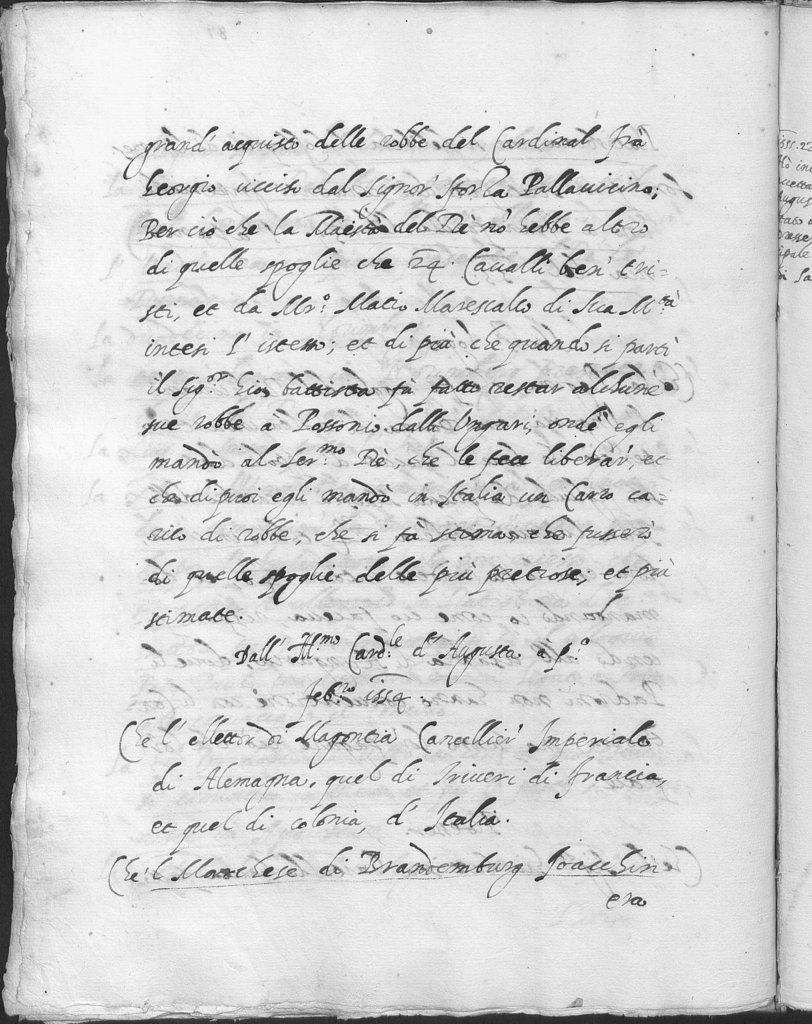 grand' acquisto delle robbe del Cardinal frà
Georgio ucciso dal Signor' Sforza Pallavicino;
Per ciò che la Maestà del Rè nō hebbe altro
di quelle spoglie che 24. Cavalli ben' tri=
sti, et da Mr.º Matio Marescallo di Sua M.tà
intesi l' istesso; et di più che quando si partì
il Sig.or Gio. battista fù fatto restar' alchune
sue robbe à Possonio dalli Ungari, onde egli
mandò al Ser.mo Rè, che le fece liberar', et
che di poi egli mandò in Italia un Carro ca=
rico di robbe, che si fà stima, che fussero
di quelle spoglie delle più pretiose; et più
stimate.
Dall' Ill.mo Card.le d' Augusta à p.º
feb.ro 1554
Che l' elettor di Magontia Cancellier' Imperiale
di Alemagna, quel di Triveri di francia,
et quel di colonia, d' Italia.
Che'l Marchese di Brandemburg Joacchin
era
1551. 22
di Sa